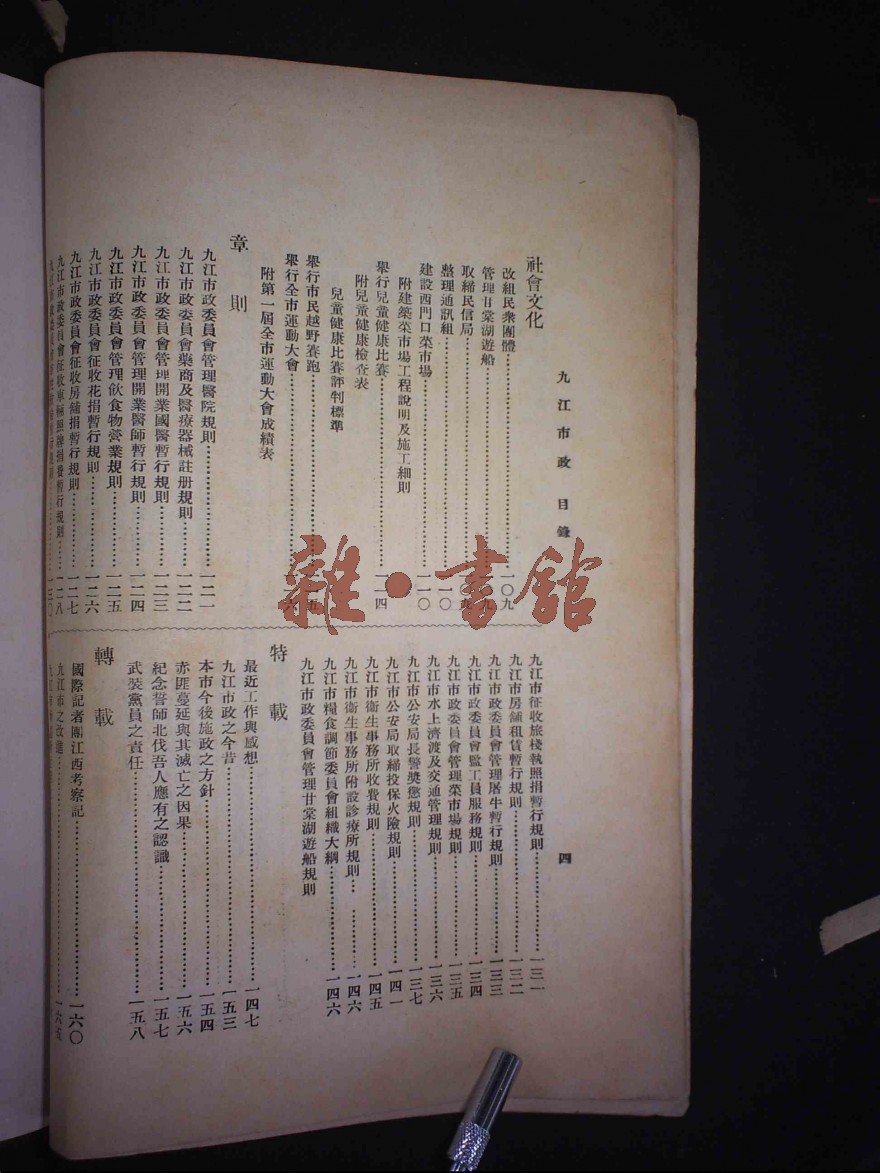 九江市政 目錄
四
社會文化
改組民衆團體……一〇九
管理甘棠湖遊船……
取締民信局……
整理通訊組……一一〇
建設西門口菜市場……一一〇
附建築菜市場工程說明及施工細則
舉行兒童健康比賽……一一四
附兒童健康檢查表
兒童健康比賽評判標準
舉行市民越野賽跑……
舉行全市運動大會……
附第一屆全市運動大會成績表
章則
九江市政委員會管理醫院規則……一二一
九江市政委員會藥商及醫療器械註册規則……一二二
九江市政委員會管理開業國醫暫行規則……一二三
九江市政委員會管理開業醫師暫行規則……一二四
九江市政委員會管理飲食物營業規則……一二五
九江市政委員會征收花捐暫行規則……一二六
九江市政委員會征收房舖捐暫行規則……一二七
九江市政委員會征收車輛照牌捐費暫行規則……一二八
一三〇
九江市征收旅棧執照捐暫行規則……一三一
九江市房舖租賃暫行規則……一三二
九江市政委員會管理屠牛暫行規則……一三三
九江市政委員會監工員服務規則……一三四
九江市政委員會管理菜市場規則……一三五
九江市水上濟渡及交通管理規則……一三六
九江市公安局長警獎懲規則……一三七
九江市公安局取締投保火險規則……一四一
九江市衞生事務所收費規則……一四五
九江市衞生事務所附設診療所規則……一四六
九江市糧食調節委員會組織大綱……一四六
九江市政委員會管理甘棠湖遊船規則
特載
最近工作與感想……一四七
九江市政之今昔……一五三
本市今後施政之方針……一五四
赤匪蔓延與其滅亡之因果……一五六
紀念誓師北伐吾人應有之認識……一五七
武裝黨員之責任……一五八
轉載
國際記者團江西考察記……一六〇
九江市之改進……一六五
雜·書館